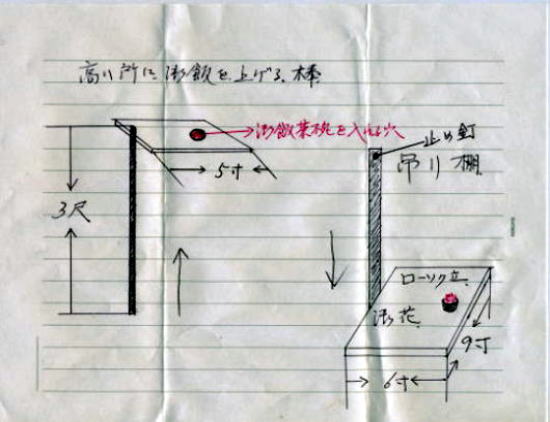 高い所に御飯を上げる棒
御飯茶碗を入れる穴
止め釘
吊り棚
5寸
3尺
ローソク立
御花
9寸
6寸